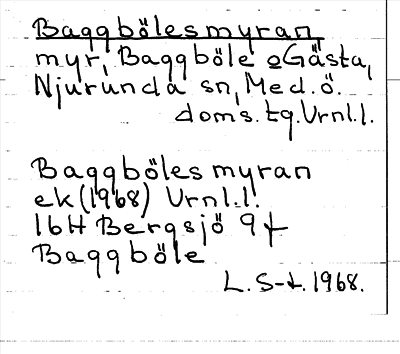 Baggbölesmyran
myr, Baggböle o Gästa,
Njurunda sn, Med. ö.
doms. tg. Vrnl. l.
Baggbölesmyran
ek (1968) Vrnl. l.
16H Bergsjö 9f
Baggböle
L. S-t. 1968.